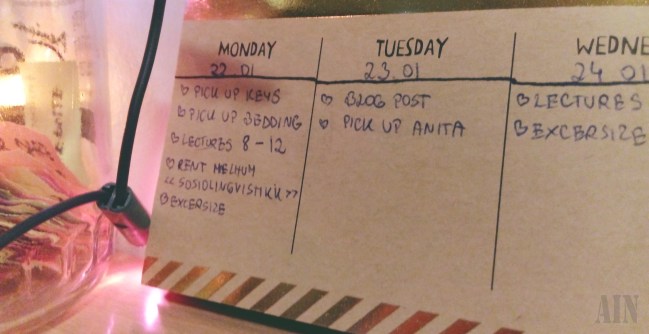 MONDAY
22.01
PICK UP KEYS
PICK UP BEDDING
LECTURES 8-12
RENT MELHUM
<< SOSIOLINGVISTIKK >>
EXCERSIZE
TUESDAY
23.01
BLOG POST
PICK UP ANITA
WEDNE
24 01
LECTURES
EXCERSIZE
AIN